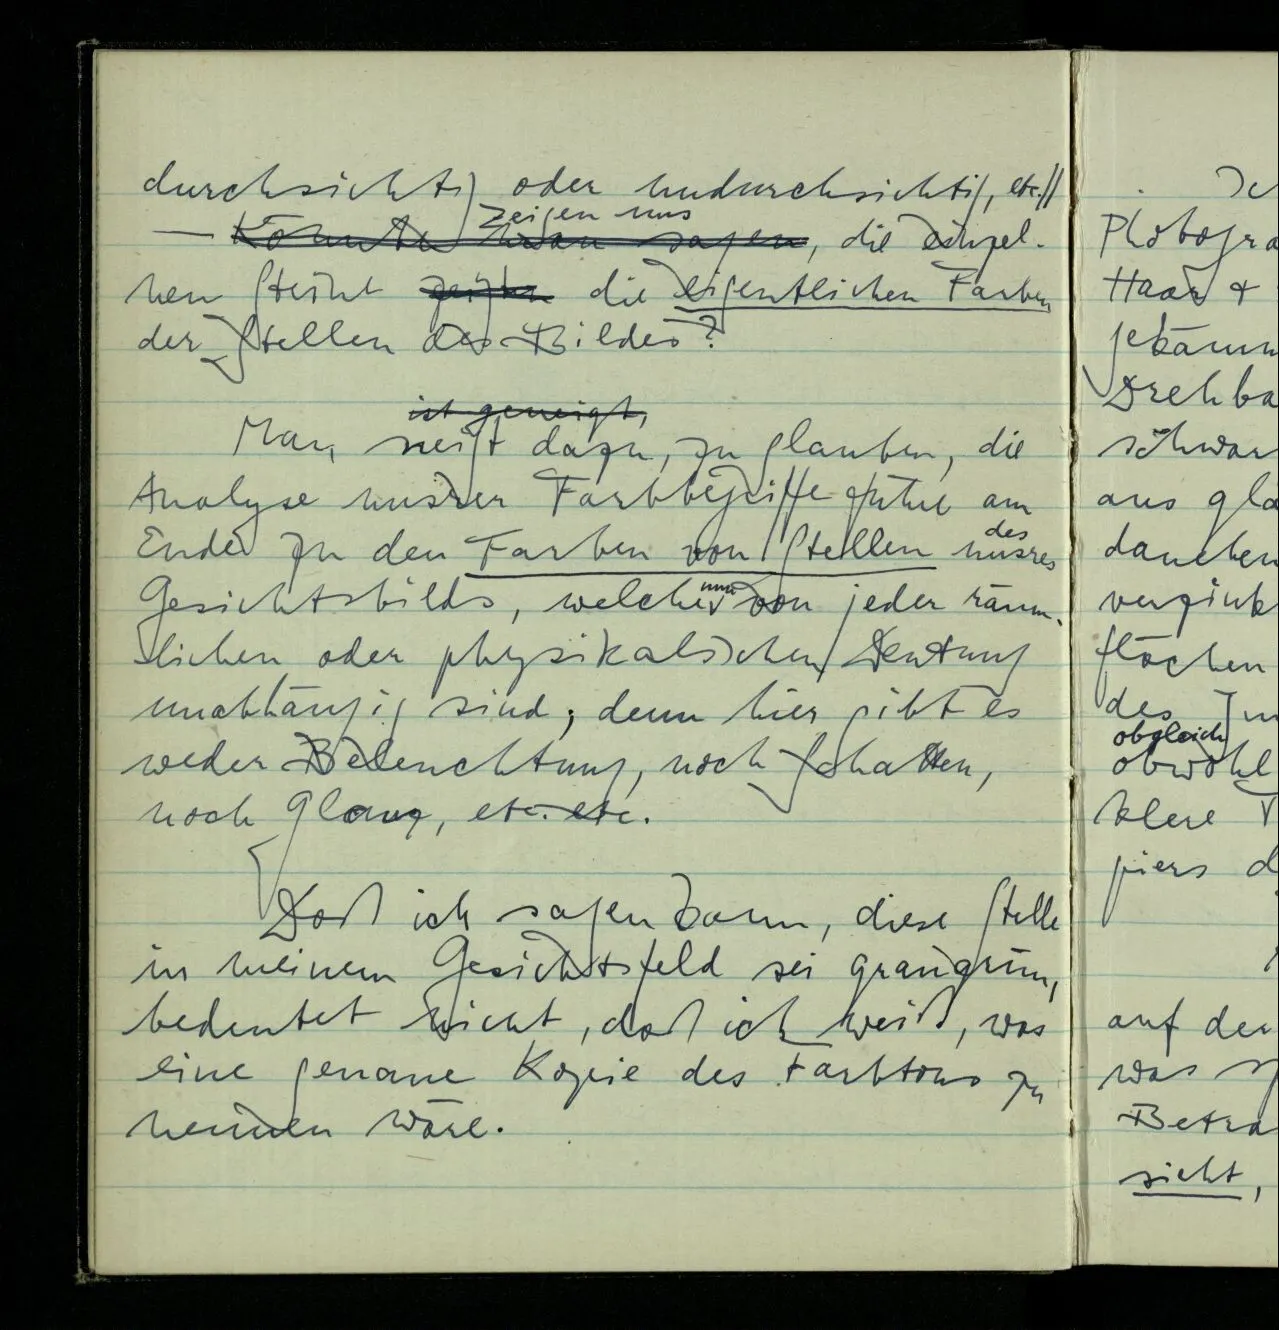 durchsichtig oder undurchsichtig, etc.//
zeigen uns
— Könnte man sagen, die einzel-
nen Steine zeigten die eigentlichen Farben
der Stellen des Bildes?
ist geneigt,
Man neigt dazu, zu glauben, die
Analyse unsrer Farbbegriffe führe am
Ende zu den Farben von Stellen unsres
des
Gesichtsbilds, welche nun von jeder räum-
lichen oder physikalischen Deutung
unabhängig sind; denn hier gibt es
weder Beleuchtung, noch Schatten,
noch Glanz, etc. etc.
Daß ich sagen kann, diese Stelle
in meinem Gesichtsfeld sei graugrün,
bedeutet nicht, daß ich weiß, was
eine genaue Kopie des Farbtons zu
nennen wäre.
Photogra
Haar +
gekämm
Drehba
schwar
aus gla
daneben
verzink
flächen
des
obgleich
obwohl
klere
piers d
auf der
was
Betra
sieht,